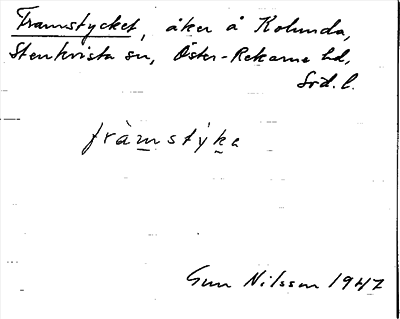 Framstycket, åker å Kolunda,
Stenkvista sn, Öster-Rekarne hd,
Söd. l.
fràmstýka
Gun Nilsson 1947